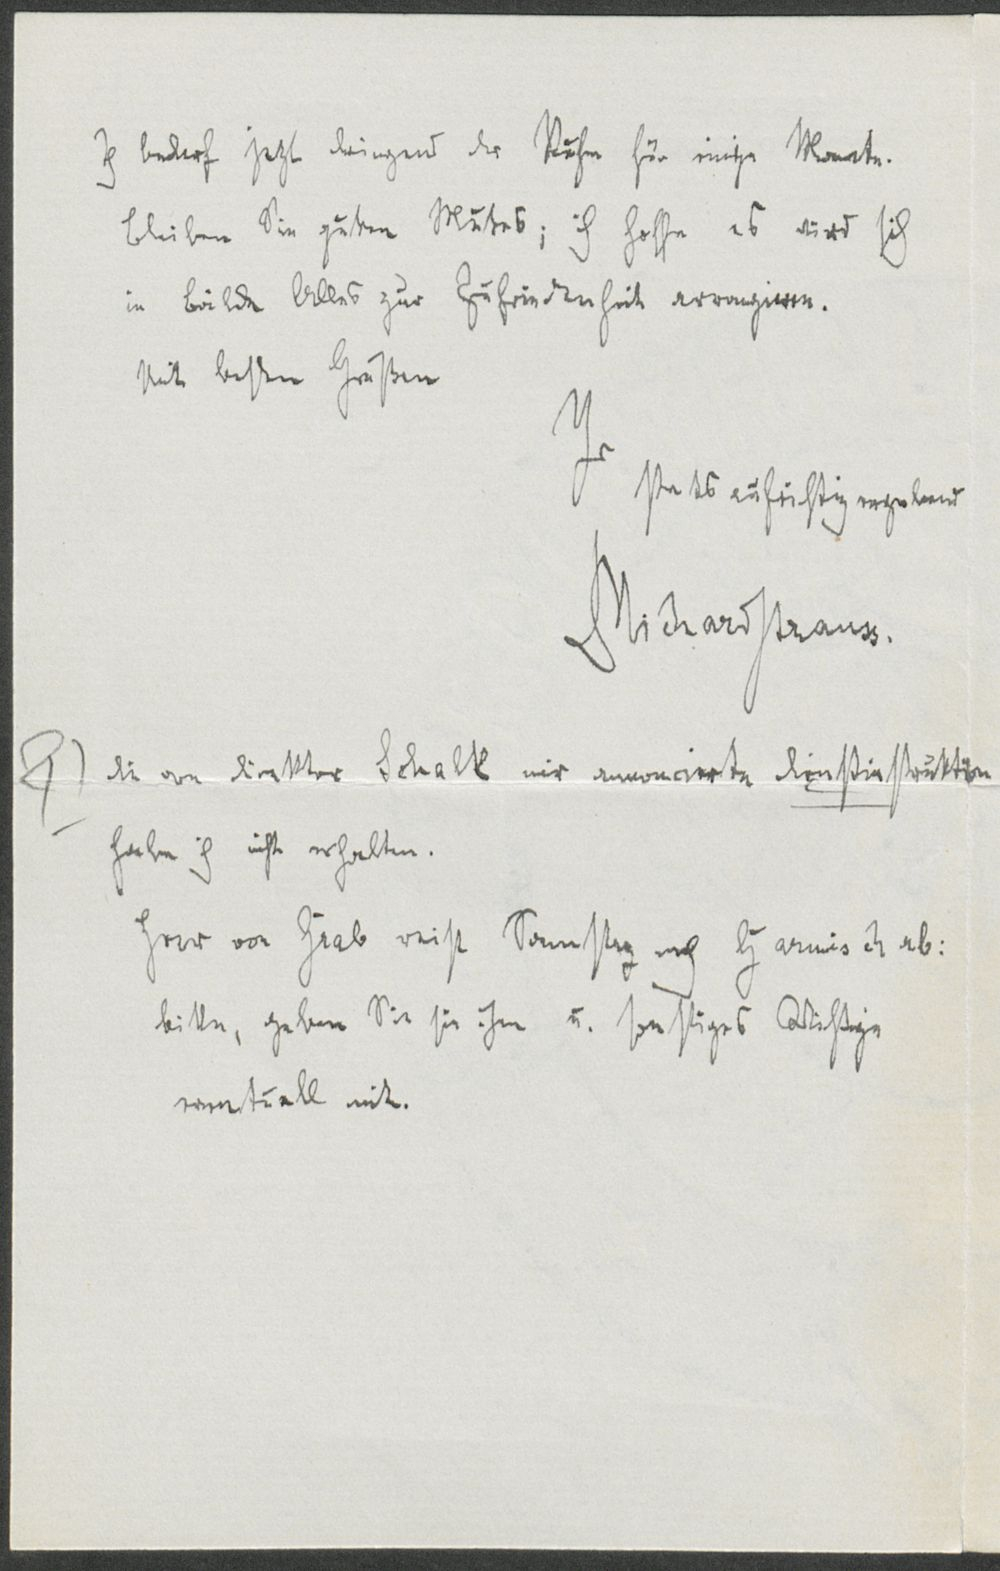 Ich bedarf jetzt dringend der Ruhe für einige Monate.
Bleiben Sie guten Mutes; ich hoffe es wird sich
in Bälde Alles zur Zufriedenheit arrangieren.
Mit besten Grüßen
Ihr
stets aufrichtig ergebener
Richard Strauss.
die von Direktor Schalk mir annoncierte Dienstinstruktion
habe ich nicht erhalten.
Herr von Grab reist Samstag nach Garmisch ab:
bitte, geben Sie sie ihm u. sonstiges Wichtige
eventuell mit.